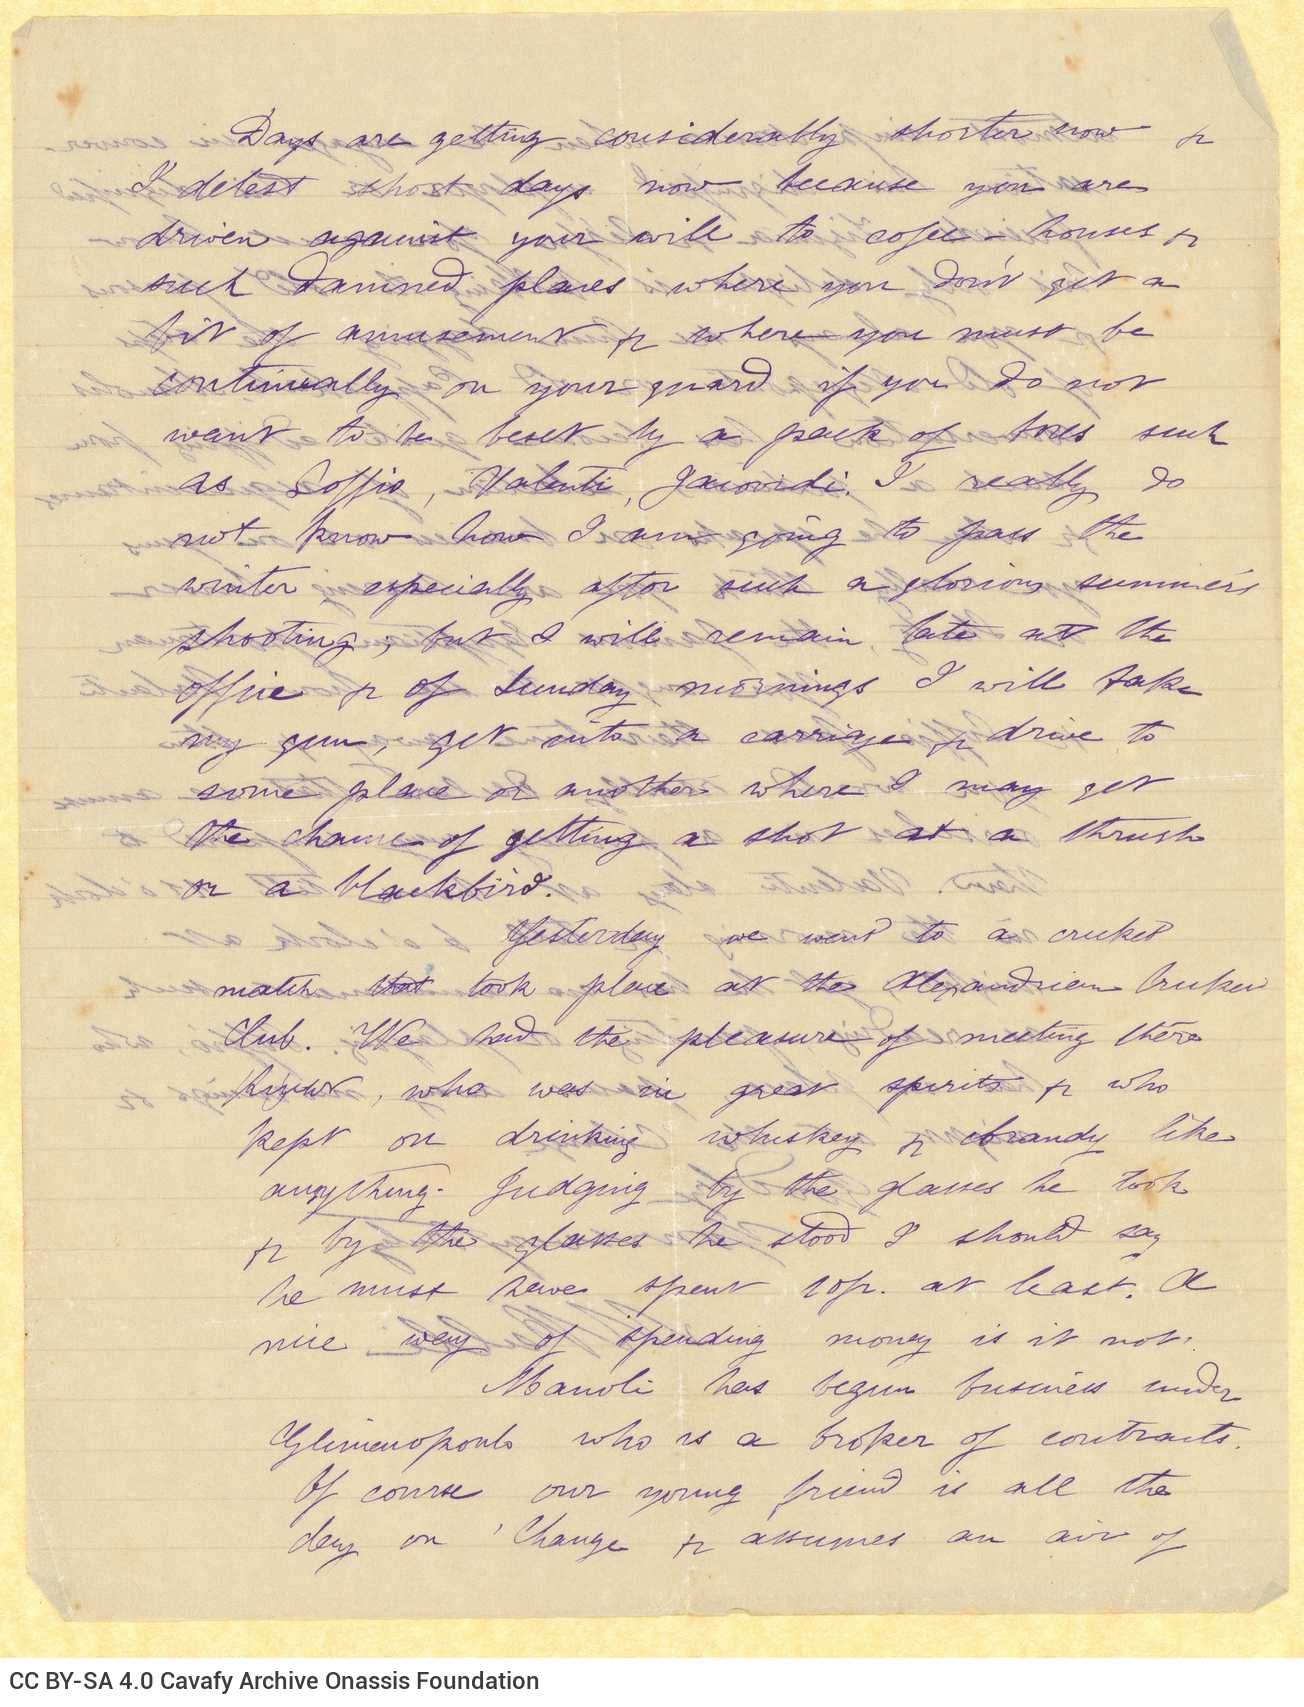 Days are getting considerably shorter now &
I detest short days now because you are
driven against your will to coffee-houses &
such damned places where you don't get a
bit of amusement & where you must be
continually on your guard if you do not
want to be beset by a pack of bores such
as Soffio, Valenti, I really do
not know how I am going to pass the
winter especially after such a glorious summer's
shooting; but I will remain late at the
office & of Sunday mornings I will take
my gun, get into a carriage & drive to
some place or another where I may get
the chance of getting a shot at a thrush
or a blackbird.
Yesterday we went to a cricket
match that took place at the Alexandrian Cricket
Club. We had the pleasure of meeting there
, who was in great spirits & who
kept on drinking whiskey & brandy like
anything. Judging by the glasses he took
& by the glasses he stood I should say
he must have spent 10f. at least. A
nice way of spending money is it not.
Manoli has begun business under
Glimenopoulo who is a broker of contracts.
Of course our young friend is all the
day on 'Change & assumes an air of
CC BY-SA 4.0 Cavafy Archive Onassis Foundation